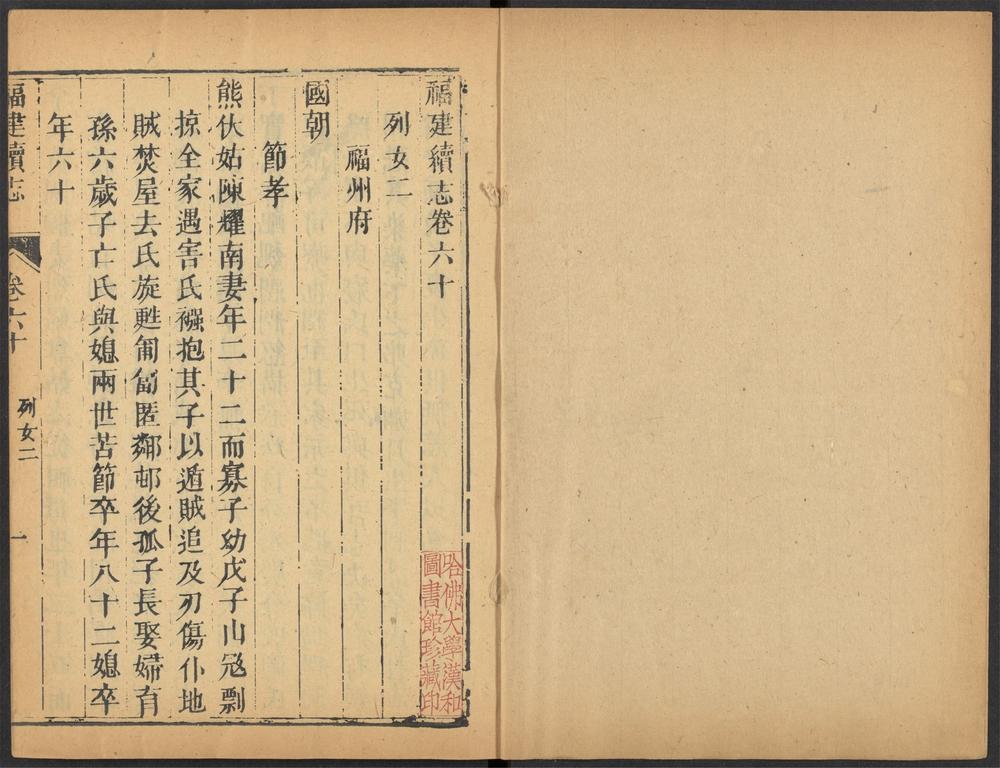 福建續志卷六十
列女二
福州府
國朝
節孝
熊伙姑陳耀南妻年二十二而寡子幼戊子山冦剽
掠全家遇害氏襁抱其子以遁賊追及刃傷仆地
賊焚屋去氏旋甦匍匐匿鄰邨後孤子長娶婦育
孫六歲子亡氏與媳兩世苦節卒年八十二媳卒
年六十
福建續志
卷六十
列女二
一
哈佛大學漢和
圖書館珍藏印